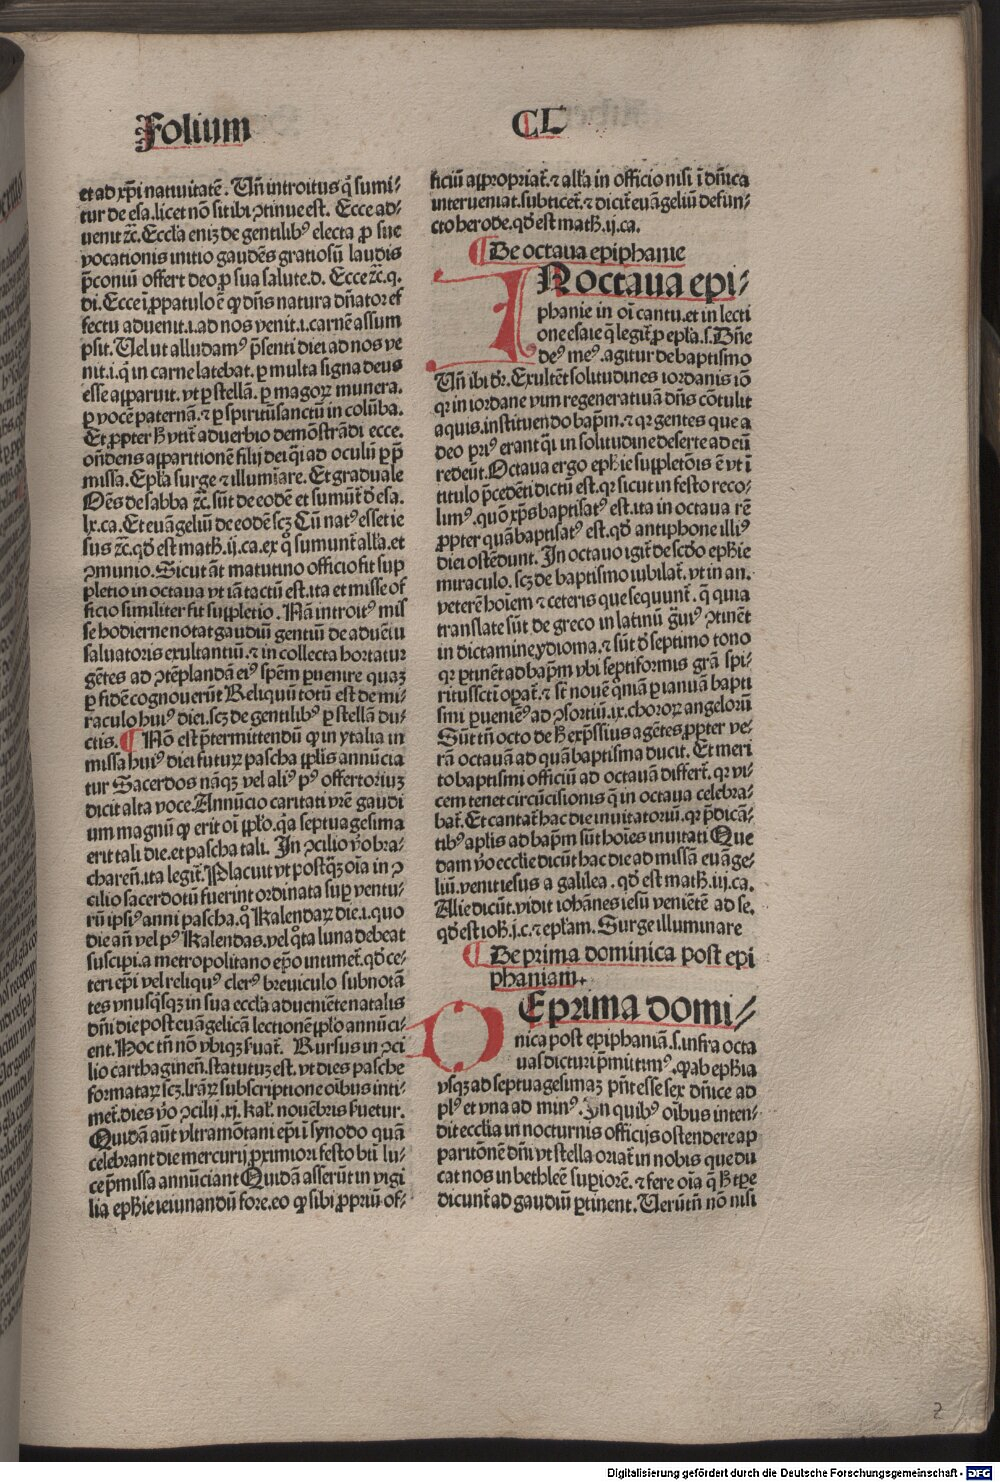 Folium
CL
et ad xp̄i natiuitatē. Vn̄ introitus q̄ sumi-
tur de esa. licet nō sit ibi ꝯtinue est. Ecce ad-
uenit ⁊c. Eccl̄a eniꝫ de gentilibꝰ electa ꝓ sue
vocationis initio gaudēs gratiosū laudis
p̄coniū offert deo ꝓ sua salute. d. Ecce ⁊c. q.
di. Ecce i. ꝓpatulo ē ꝙ dn̄s natura dn̄ator ef
fectu aduenit. i. ad nos venit. i. carnē assum
psit. Vel vt alludamꝰ p̄senti diei ad nos ve
nit. i. q̄ in carne latebat. ꝑ multa signa deus
esse apparuit. vt ꝑ stellā. ꝑ magoꝝ munera.
ꝑ vocē paternā. ⁊ ꝑ spiritūsanctū in colūba.
Et ꝓpter ħ vtit᷑ aduerbio demōstrādi ecce.
on̄dens apparitionē filij dei q̄i ad oculū ꝑ p̄
missa. Epl̄a surge ⁊ illumīare. Et graduale
Om̄s de sabba ⁊c. sūt de eodē et sumūt᷑ đ esa.
lx. ca. Et euāgeliū de eodē scꝫ Cū natꝰ esset ie
sus ⁊c. qđ est math. ij. ca. ex q̊ sumunt᷑ all̄a. et
ꝯmunio. Sicut āt matutino officio fit sup
pletio in octaua vt iā tactū est. ita et misse of
ficio similiter fit suppletio. Nā introitꝰ mis
se hodierne notat gaudiū gentiū de aduētu
saluatoris exultantiū. ⁊ in collecta hortatur
gētes ad ꝯtēplandā eiꝰ spēm ꝑuenire quaꝫ
ꝑ fidē cognouerūt Reliquū totū est de mi-
raculo huiꝰ diei. scꝫ de gentilibꝰ ꝑ stellā du-
ctis. ¶ Nō est p̄termittendū ꝙ in ytalia in
missa huiꝰ diei futuꝝ pascha ppl̄is annūcia
tur Sacerdos nāqꝫ vel aliꝰ pꝰ offertoriuꝫ
dicit alta voce. Annūcio caritati vr̄e gaudi
um magnū ꝙ erit oī ppl̄o. q̄a septuagesima
erit tali die. et pascha tali. In ꝯcilio v̊o bra-
charen̄. ita legit᷑. Placuit vt postq̄ꝫ oīa in ꝯ
cilio sacerdotū fuerint ordinata suꝑ ventu-
rū ipsiꝰ anni pascha. q̊ Kalendaꝝ die. i. quo
die an̄ vel pꝰ Kalendas. vel q̊ta luna debeat
suscipi. a metropolitano ep̄o intimet᷑. qđ ce-
teri ep̄i vel reliquꝰ clerꝰ breuiculo subnotā
tes vnusq̄sqꝫ in sua eccl̄a adueniēte natalis
dn̄i die post euāgelicā lectionē ppl̄o annūci-
ent. Hoc tn̄ nō vbiqꝫ ẜuat᷑. Rursus in ꝯci
lio carthaginen̄. statutuꝫ est. vt dies pasche
formataꝝ scꝫ lr̄aꝝ subscriptione oībus inti-
met᷑. dies v̊o ꝯcilij. xj. kal᷑. nouēbris ẜuetur.
Quidā aūt vltramōtani ep̄i ī synodo quā
celebrant die mercurij ꝓximiori festo bt̄i lu-
ce p̄missa annūciant Quidā asserūt in vigi
lia eph̄ie ieiunandū fore. eo ꝙ sibi ꝓpriū of-
ficiū appropriat᷑. ⁊ all̄a in officio nisi ī dn̄ica
interueniat. subticet᷑. ⁊ dicit᷑ euāgeliū defun-
cto herode. qđ est math. ij. ca.
¶ De octaua epiphanie
IN octaua epi-
phanie in oī cantu. et in lecti
one esaie q̄ legit᷑ ꝓ epl̄a. s. Dn̄e
deꝰ meꝰ. agitur de baptismo
Vn̄ ibi dr̄. Exultēt solitudines iordanis iō
qꝛ in iordane vim regeneratiuā dn̄s cōtulit
aquis. instituendo bap̄m. ⁊ qꝛ gentes que a
deo priꝰ erant q̄i in solitudine deserte ad eū
redeūt. Octaua ergo eph̄ie suppletōis ē vt ī
titulo p̄cedēti dictū est. qꝛ sicut in festo reco-
limꝰ. quō xp̄s baptisatꝰ est. ita in octaua rē
ꝓpter quā baptisatꝰ est. qđ antiphone illiꝰ
diei ostēdunt. In octauo igit᷑ de scđo eph̄ie
miraculo. scꝫ de baptismo iubilat᷑. vt in an̄.
veterē hoīem ⁊ ceteris que sequunt᷑. q̄ quia
translate sūt de greco in latinū ḡuiꝰ ꝯtinēt
in dictamine ydioma. ⁊ sūt đ septimo tono
qꝛ ꝑtinēt ad bap̄m vbi septiformis grā spi-
ritusscti oꝑat᷑. ⁊ st̄ nouē qm̄ ꝑ ianuā bapti
smi ꝑueniēꝰ ad ꝯsortiū. ix. choroꝝ angeloꝝ
Sūt tn̄ octo de ħ exp̄ssius agētes. ꝓpter ve-
rā octauā ad quā baptisma ducit. Et meri
to baptismi officiū ad octauā differt᷑. qꝛ vi-
cem tenet circūcisionis q̄ in octaua celebra-
bat᷑. Et cantat᷑ hac die inuitatoriū. qꝛ p̄dicā-
tibꝰ apl̄is ad bap̄m sūt hoīes inuitati Que
dam v̊o ecclie dicūt hac die ad missā euāge-
liū. venit iesus a galilea. qđ est math. iij. ca.
Alie dicūt. vidit iohānes iesū veniētē ad se.
qđ est ioh̄. j. c. ⁊ epl̄am. Surge illuminare
¶ De prima dominica post epi
phaniam.
DE prima domi-
nica post epiphaniā. s. infra octa
uas dicturi p̄mittimꝰ. ꝙ ab eph̄ia
vsqꝫ ad septuagesimaꝫ pn̄t esse sex dn̄ice ad
plꝰ et vna ad minꝰ. In quibꝰ oībus inten-
dit ecclīa in nocturnis officijs ostendere ap
paritōnē dn̄i vt stella oriat᷑ in nobis que du
cat nos in bethleē suꝑiorē. ⁊ fere oīa q̄ ħ tꝑe
dicunt᷑ ad gaudiū ꝑtinent. Verūtn̄ nō nisi
2
Digitalisierung gefördert durch die Deutsche Forschungsgemeinschaft - DFG